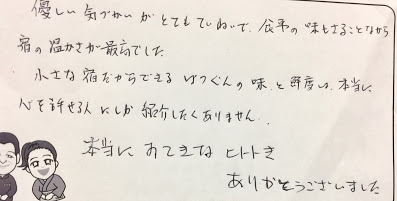 優しい気づかいがとてもていねいで、食事の味もさることながら
宿の温かさが最高でした
小さな宿だからできるばつぐんの味、と鮮度は、本当に
心を許せる人にしか紹介したくありません。
本当におてきなヒトトき
ありがとうございました